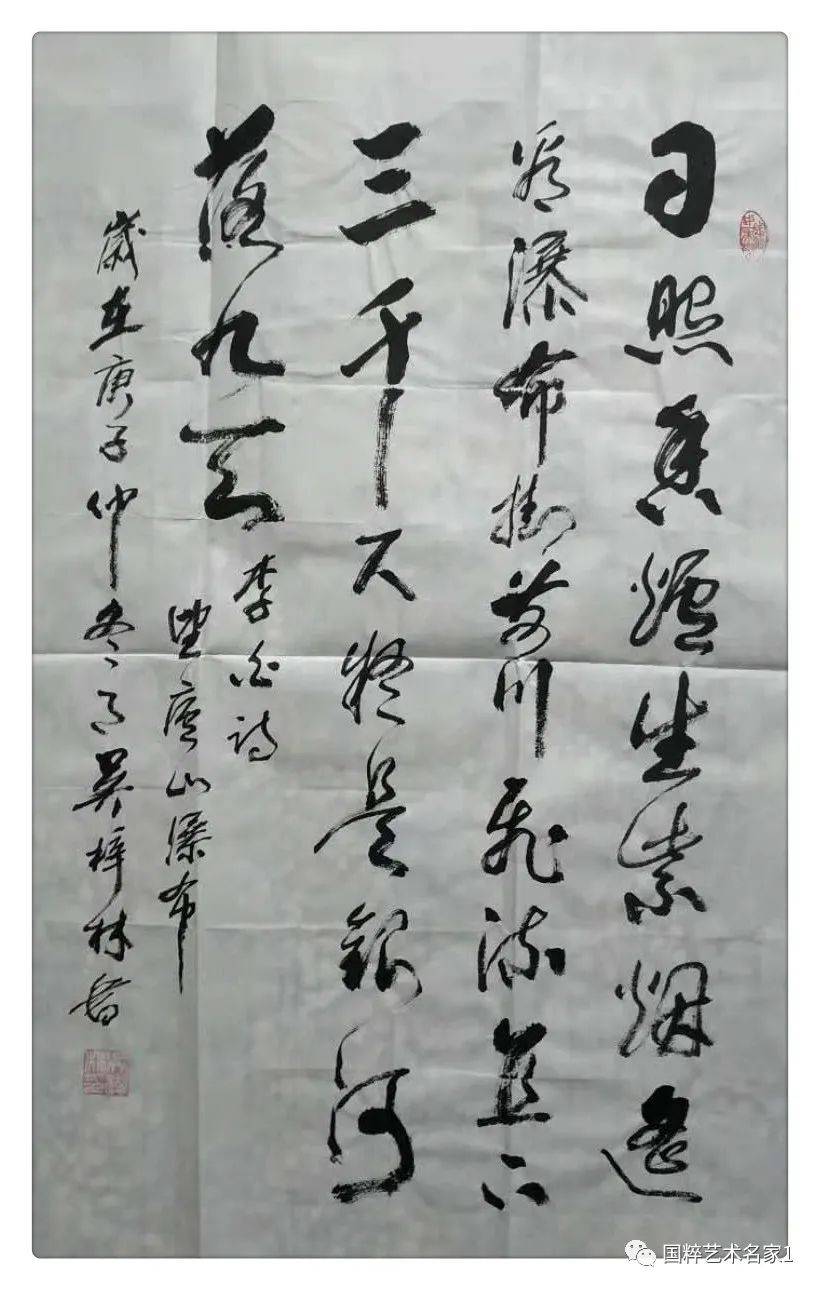 日照香爐生紫烟遥
看瀑布掛前川飛流直下
三千尺疑是銀河
落九天
李白詩
望廬山瀑布
歲在庚子仲冬月吴梓林書
国粹艺术名家1